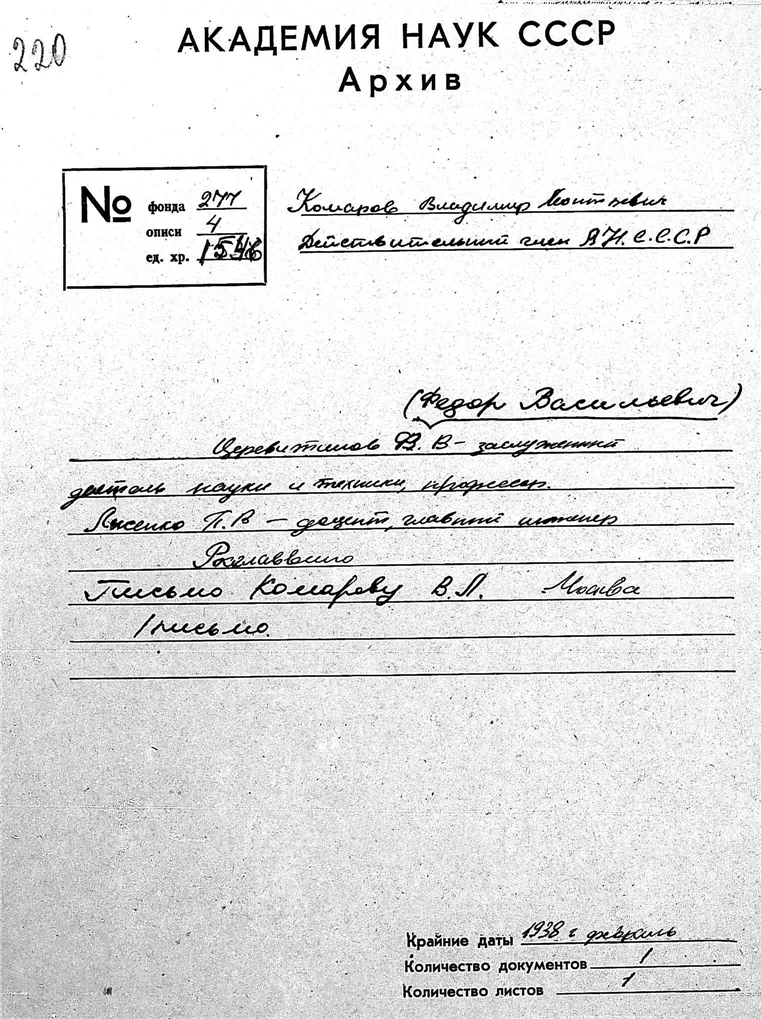 220
АКАДЕМИЯ НАУК СССР
Архив
№
фонда 277
описи 4
ед. хр. 1546
Комаров Владимир Леонтьевич
Действительный член АН С.С.С.Р
(Федор Васильевич)
Церевитинов Ф. В – заслуженный
деятель науки и техники, профессор.
Лысенко П. В – доцент, главный инженер
Росглаввино
Письмо Комарову В. Л. Москва
1 письмо.
Крайние даты 1938 г февраль
Количество документов 1
Количество листов 1